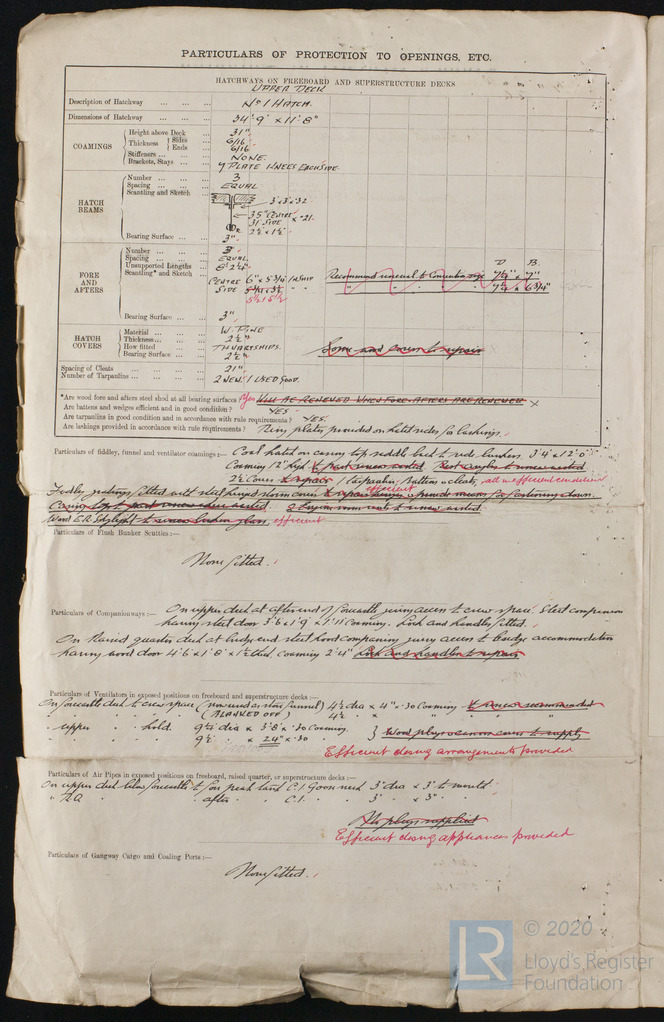 PARTICULARS OF PROTECTION TO OPENINGS, ETC.
HATCHWAYS ON FREEBOARD AND SUPERSTRUCTURE DECKS
UPPER DECK
Description of Hatchway ... ... ... No 1 HATCH.
Dimensions of Hatchway ... ... ... 34' 9" x 11' 8"
COAMINGS
Height above Deck ... 31"
Thickness Sides ... 6/16
Ends ... 6/16
Stiffeners ... ... ... NONE
Brackets, Stays ... ... 7 PLATE KNEES EACH SIDE
HATCH BEAMS
Number ... ... ... 3
Spacing ... ... ... EQUAL
Scantling and Sketch ... 3 x 3 x 32
35 CENTRE
31 SIDE x .21
2½ x 1½
Bearing Surface ... ... 3"
FORE AND AFTERS
Number ... ... ... 3
Spacing ... ... ... EQUAL
Unsupported Lengths ... 8' 2¼"
D B.
Scantling* and Sketch ... CENTRE 6" x 5 3/4" Recommend renewal 7¼" x 7"
SIDE 7¼ x 6 3/4"
5½ x 5½
Bearing Surface ... ... 3"
HATCH COVERS
Material ... ... ... W. PINE
Thickness ... ... ... 2½"
How fitted ... ... ... THWARTSHIPS.
Bearing Surface ... ... 2½" Some end covers to repair
Spacing of Cleats ... ... ... 21"
Number of Tarpaulins ... ... ... 2 NEW. 1 USED GOOD.
*Are wood fore and afters steel shod at all bearing surfaces Yes WILL BE RENEWED WHEN FORE-AFTERS ARE RENEWED X
Are battens and wedges efficient and in good condition? YES
Are tarpaulins in good condition and in accordance with rule requirements? YES.
Are lashings provided in accordance with rule requirements? Ring plates provided on hatch sides for lashings.
Particulars of fiddley, funnel and ventilator coamings:— Coal hatch on casing top saddle back to side bunkers 3' 4 x 12' 0"
Coaming 12" high
2½ Covers to repair 1 tarpaulin, battens & cleats, all in efficient condition
efficient
Fiddley gratings fitted with steel hinged storm covers to repair hinges & provide means for fastening down.
Wood E.R. Skylight to renew broken glass efficient
Particulars of Flush Bunker Scuttles:—
None fitted.
Particulars of Companionways:— On upper deck at after end of forecastle giving access to crew space. Steel companion
having steel door 3' 6 x 1' 9" x 1' 11" Coaming. Lock and handles fitted.
On Raised quarter deck at bridge end steel hood companion giving access to bridge accommodation
having wood door 4' 6 x 1' 8 x 1½ thick coaming 2' 4" Lock and handles to repair
Particulars of Ventilators in exposed positions on freeboard and superstructure decks:—
On forecastle deck to crew space 4½ dia x 4" x .30 Coaming
" " " (BLANKED OFF) 4½ " " "
" upper " hold. 9½ dia x 3' 8" x .30 Coaming } Wood plugs & canvas covers to supply
" " " " 9½ " x 24" x .30
Efficient closing arrangements provided
Particulars of Air Pipes in exposed positions on freeboard, raised quarter, or superstructure decks:—
On upper deck below forecastle to fore peak tank C.I. Goose neck 3" dia x 3" to mouth
" R.Q. " " after " " C.I. " " 3" " x 3" "
Efficient closing appliances provided
Particulars of Gangway Cargo and Coaling Ports:—
None fitted.
LR
© 2020
Lloyd's Register
Foundation